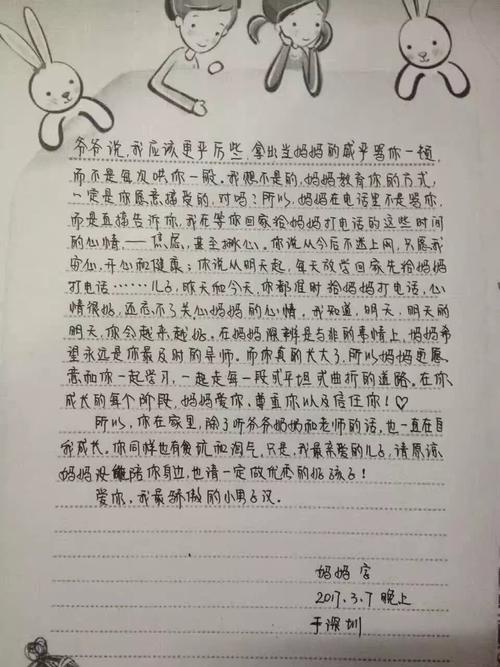 爷爷说，我应该更严厉些，拿出当妈妈的威严骂你一顿，
而不是每次哄你一般。我想不是的，妈妈教育你的方式，
一定是你愿意接受的，对吗？所以，妈妈在电话里不是骂你，
而是直接告诉你，我在等你回家给妈妈打电话的这些时间
的心情，——焦虑，甚至揪心。你说从今后不迷上网，只愿我
安心，开心和健康；你说从明天起，每天放学回家先给妈妈
打电话……儿子，昨天和今天，你都准时给妈妈打电话，心
情很好，还忘不了关心妈妈的心情。我知道，明天，明天的
明天，你会越来越好。在妈妈深辨是与非的事情上，妈妈希
望永远是你最及时的导师。而你真的长大了，所以妈妈更愿
意和你一起学习，一起走每一段或平坦或曲折的道路。在你
成长的每个阶段，妈妈爱你、尊重你以及信任你！♡
所以，你在家里，除了听爷爷奶奶和老师的话，也一直在自
我成长。你同样也有贪玩和淘气，只是，我最亲爱的儿子，请原谅
妈妈没能陪你身边，也请一定做优秀的好孩子！
爱你，我最骄傲的小男子汉。
妈妈字
2017.3.7晚上
于深圳